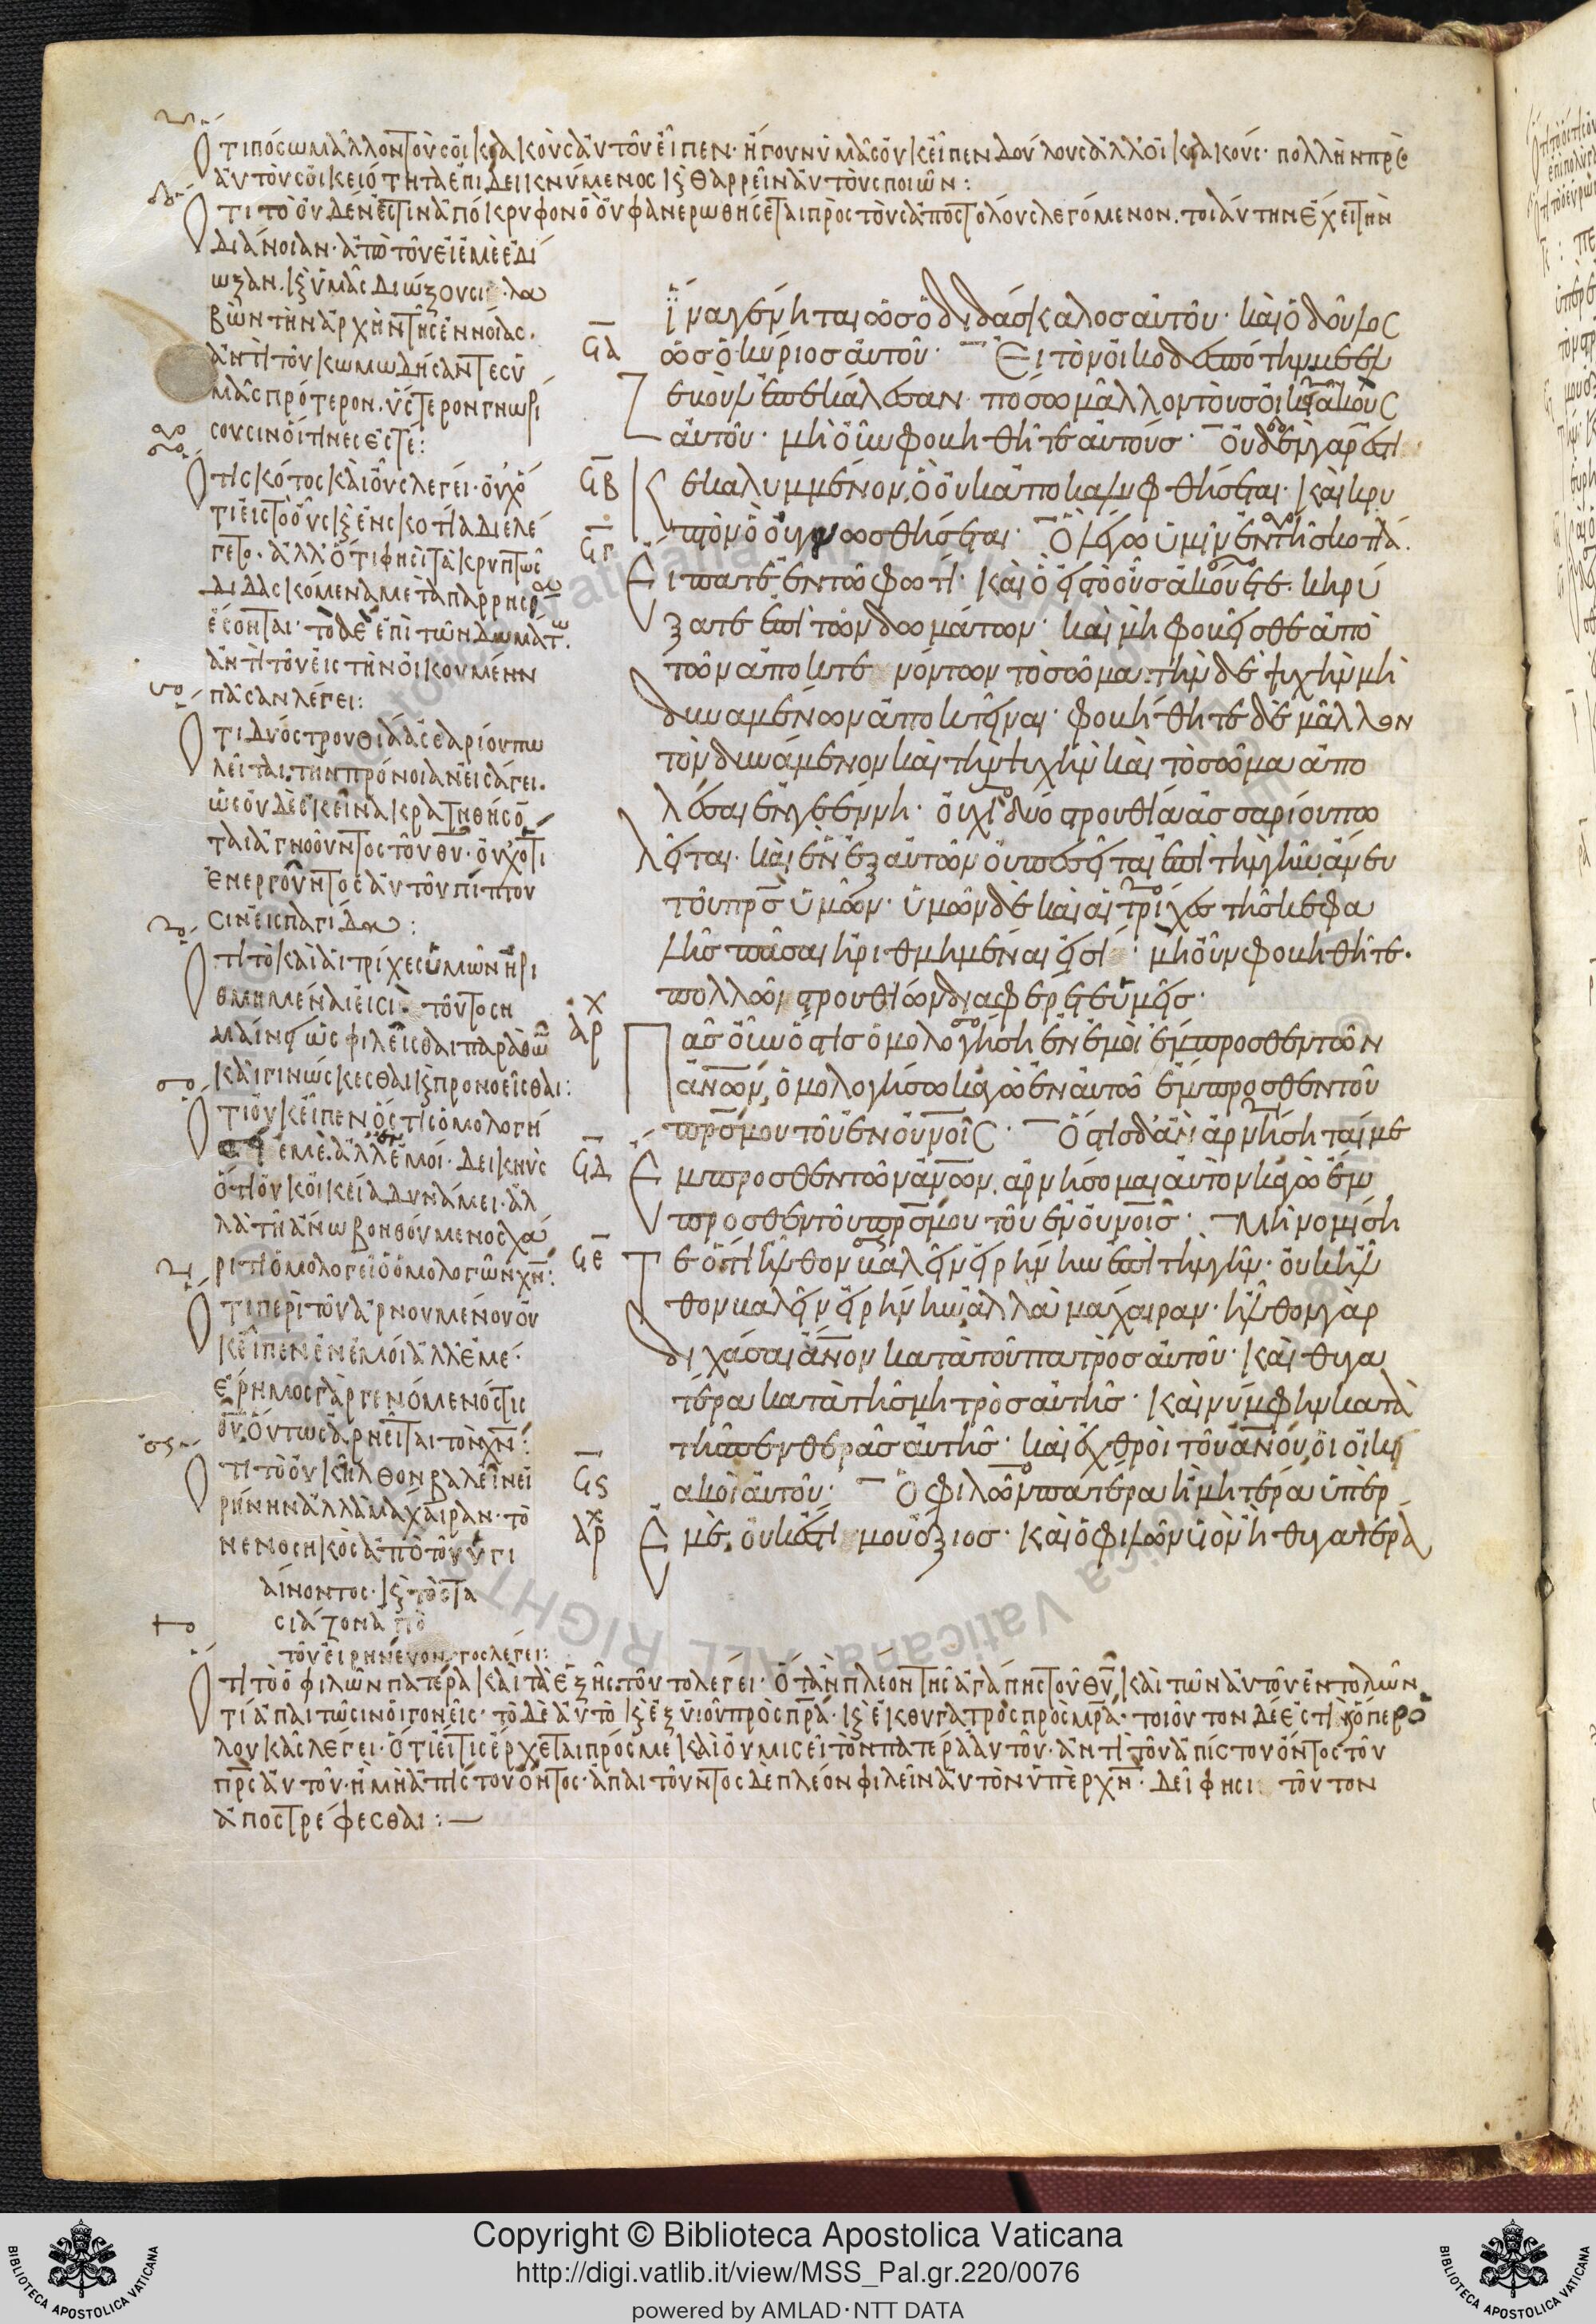 Ὅτι πόσω μᾶλλον τοὺς οἰκιακοὺς αὐτοῦ εἶπεν· ἤγουν ὑμᾶς· οὐκ εἶπεν δούλους ἀλλ' οἰκιακούς· πολλὴν πρὸς
αὐτοὺς οἰκειότητα ἐπιδεικνύμενος κ θαρρεῖν αὐτοὺς ποιῶν:
Ὅτι τὸ οὐδέν ἐστιν ἀπόκρυφον ὃ οὐ φανερωθήσεται πρὸς τοὺς ἀποστόλους λεγόμενον. τοιαύτην ἔχει τὴν
διάνοιαν· ἀπὸ τοῦ εἰ ἐμὲ ἐδί
ωξαν. κ ὑμᾶς διώξουσι· λα
βὼν τὴν ἀρχὴν τῆς ἐννοίας.
ἀντὶ τοῦ κωμωδήσαντες ὑ
μᾶς πρότερον. ὕστερον γνωρί
σουσιν οἵτινες ἐστέ:
Ὅτι σκότος καὶ οὖς λέγει· οὐχ ὅ
τι εἰς τὸ οὖς κ ἐν σκοτία διελέ
γετο. ἀλλ' ὅτι φησὶ τὰ κρυπτῶς
διδασκόμενα μετὰ παρρησίας
ἔσονται· τὸ δὲ ἐπὶ τῶν δωμάτων.
ἀντὶ τοῦ εἰς τὴν οἰκουμένην
πᾶσαν λέγει:
Ὅτι δύο στρουθία ἀσσαρίου πω
λεῖται· τὴν πρόνοιαν εἰσάγει.
ὡς οὐδὲ ἐκεῖνα κρατηθήσον
ται ἀγνοοῦντος τοῦ θυ· οὐχ ὅτι
ἐνεργοῦντος αὐτοῦ πίπτου
σιν εἰς παγίδα:
Ὅτι τὸ καὶ αἱ τρίχες ὑμῶν ἠρι
θμημέναι εἰσί· τοῦτο ση
μαίνει ὡς φιλεῖσθαι παρὰ θῶ
καὶ γινώσκεσθαι κ προνοεῖσθαι:
Ὅτι οὐκ εἶπεν ὅστις ὁμολογή
ση ἐμέ. ἀλλ' ἐν ἐμοί· δεικνὺς
ὅτι οὐκ οἰκεία δυνάμει· ἀλ
λὰ τῆ ἄνω βοηθούμενος χά
ριτι ὁμολογεῖ ὁ ὁμολογῶν χν:
Ὅτι περὶ τοῦ ἀρνουμένου οὐ
κ εἶπεν ἐν ἐμοὶ ἀλλ' ἐμέ·
ἔρημος γὰρ γενόμενός τις
θυ. οὕτως ἀρνεῖται τὸν χν:
Ὅτι τὸ οὐκ ἦλθον βαλεῖν εἰ
ρήνην ἀλλὰ μάχαιραν· τὸ
νενοσηκὸς ἀπὸ τοῦ ὑγι
αίνοντος· κ τὸ στα
σιάζον ἀπὸ
τοῦ εἰρηνεύοντος λέγει:
Ὅτι τὸ ὁ φιλῶν πατέρα καὶ τὰ ἑξῆς. τοῦτο λέγει· ὅταν πλέον τῆς ἀγάπης τοῦ θυ, καὶ τῶν αὐτοῦ ἐντολῶν
τί ἀπαιτῶσιν οἱ γονεῖς· τὸ δὲ αὐτὸ κ ἐξ υἱοῦ πρὸς πρα· κ ἐκ θυγατρὸς πρὸς μρα· τοιοῦτον δέ ἐστι κ ὅπερ ὁ
λουκᾶς λέγει· ὅτι εἴ τις ἔρχεται πρός με καὶ οὐ μισεῖ τὸν πατέρα αὐτοῦ· ἀντὶ τοῦ ἀπίστου ὄντος τοῦ
πρς αὐτοῦ· ἢ μὴ ἀπίστου ὄντος· ἀπαιτοῦντος δὲ πλέον φιλεῖν αὐτὸν ὑπὲρ χν· δεῖ φησι τοῦτον
ἀποστρέφεσθαι:—
ἵνα γένηται ὡς ὁ διδάσκαλος αὐτοῦ· καὶ ὁ δοῦλος
ϟα ὡς ὁ κύριος αὐτοῦ· Εἰ τὸν οἰκοδεσπότην βεελ
ζεβοὺλ ἐπεκάλεσαν· πόσω μᾶλλον τοὺς οἰκιακοὺς
αὐτοῦ· μὴ οὖν φοβηθῆτε αὐτούς· Οὐδὲν γάρ ἐστι
ϟβ κεκαλυμμένον, ὃ οὐκ ἀποκαλυφθήσεται· καὶ κρυ
ϟγ πτὸν ὃ οὐ γνωσθήσεται· Ὃ λέγω ὑμῖν ἐν τῆ σκοτία.
Εἴπατε ἐν τῶ φωτί· καὶ ὃ εἰς τὸ οὖς ἀκούετε· κηρύ
ξατε ἐπὶ τῶν δωμάτων· καὶ μὴ φοβεῖσθε ἀπὸ
τῶν ἀποκτενόντων τὸ σῶμα· τὴν δὲ ψυχὴν μὴ
δυναμένων ἀποκτεῖναι· φοβήθητε δὲ μᾶλλον
τὸν δυνάμενον καὶ τὴν ψυχὴν καὶ τὸ σῶμα ἀπο
λέσαι ἐν γεέννη· οὐχὶ δύο στρουθία ἀσσαρίου πω
λεῖται· καὶ ἓν ἐξ αὐτῶν οὐ πεσεῖται ἐπὶ τὴν γῆν ἄνευ
τοῦ πρς ὑμῶν· ὑμῶν δὲ καὶ αἱ τρίχες τῆς κεφα
λῆς πᾶσαι ἠριθμημέναι εἰσί· μὴ οὖν φοβηθῆτε.
πολλῶν στρουθίων διαφέρετε ὑμεῖς·
Πᾶς οὖν ὅστις ὁμολογήση ἐν ἐμοὶ ἔμπροσθεν τῶν
ανων, ὁμολογήσω κἀγὼ ἐν αὐτῶ ἔμπροσθεν τοῦ
πρς μου τοῦ ἐν ουνοῖς· Ὅστις δ' ἂν ἀρνήσηταί με
ϟδ Ἔμπροσθεν τῶν ανων. ἀρνήσομαι αὐτὸν κἀγὼ ἔμ
προσθεν τοῦ πρς μου τοῦ ἐν ουνοις· Μὴ νομίση
ϟε Τε ὅτι ἦλθον βαλεῖν εἰρήνην ἐπὶ τὴν γῆν· οὐκ ἦλ
θον βαλεῖν εἰρήνην, ἀλλὰ μάχαιραν· ἦλθον γὰρ
διχάσαι ανον κατὰ τοῦ πατρὸς αὐτοῦ· καὶ θυγα
τέρα κατὰ τῆς μητρὸς αὐτῆς· καὶ νύμφην κατὰ
τῆς πενθερᾶς αὐτῆς· καὶ ἐχθροὶ τοῦ ανου, οἱ οἰκι
ϟς ακοὶ αὐτοῦ· Ὁ φιλῶν πατέρα ἢ μητέρα ὑπὲρ
Ἐμέ, οὐκ ἔστι μου ἄξιος· καὶ ὁ φιλῶν υἱὸν ἢ θυγατέρα
Copyright © Biblioteca Apostolica Vaticana
http://digi.vatlib.it/view/MSS_Pal.gr.220/0076
powered by AMLAD·NTT DATA
BIBLIOTECA APOSTOLICA VATICANA
BIBLIOTECA APOSTOLICA VATICANA